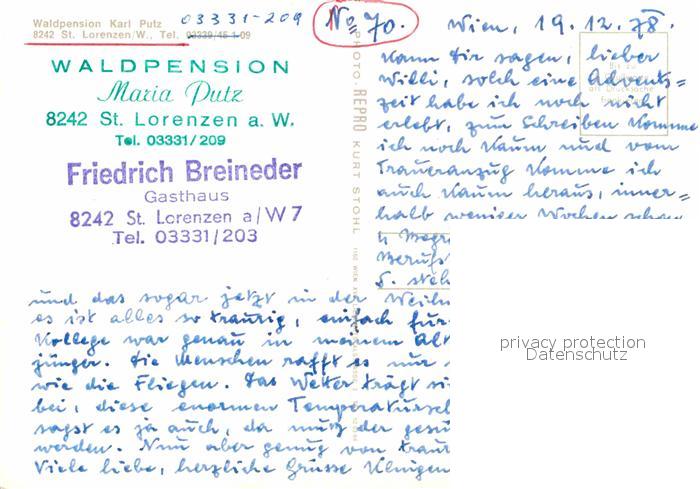 Waldpension Karl Putz
8242 St. Lorenzen/W., Tel. 03339/45 1 09
03331-209
No 70.
WALDPENSION
Maria Putz
8242 St. Lorenzen a. W.
Tel. 03331/209
Friedrich Breineder
Gasthaus
8242 St. Lorenzen a/W 7
Tel. 03331/203
PHOTO-REPRO KURT STOHL
Wien, 19.12.78.
Kann Dir sagen, lieber
Willi, solch eine Advents=
zeit habe ich noch nicht
erlebt, zum Schreiben komme
ich noch kaum und vom
Traueranzug komme ich
auch kaum heraus, inner=
halb weniger Wochen schon
4 Begr
Berufs
S. steh
und das sogar jetzt in der Weihn
es ist alles so traurig, einfach für
Kollege war genau in meinem Alt
jünger. Die Menschen rafft es nur
wie die Fliegen. Das Wetter trägt si
bei, diese enormen Temperatursch
sagst es ja auch, da muß der gesü
werden. Nun aber genug von traur
Viele liebe, herzliche Grüsse
privacy protection
Datenschutz